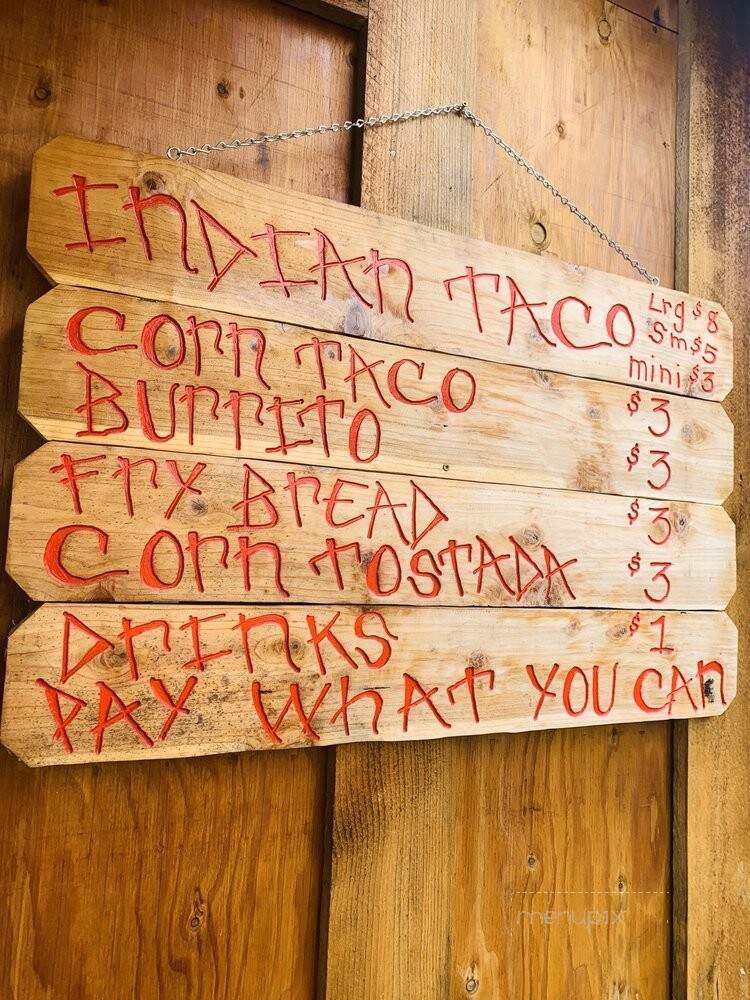 INDIAN TACO Lrg $8
Sm $5
mini $3
CORN TACO $3
BURRITO $3
FRY BREAD $3
CORN TOSTADA $3
DRINKS $1
PAY WHAT YOU CAN
menupix